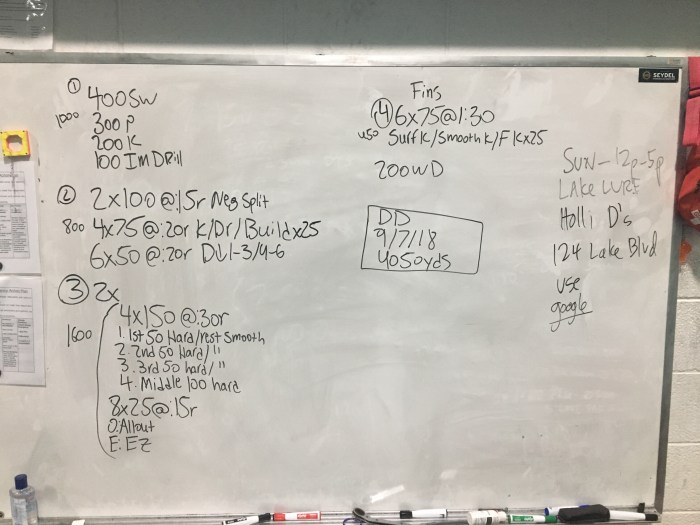 ① 400 SW
1000 300 P
200 K
100 Im DRill
② 2x100 @:15r Neg Split
800 4x75 @:20r K/Dr/Buildx25
6x50 @:20r DL1-3/4-6
③ 2x
1600 4x150 @:30r
1. 1st 50 Hard/rest Smooth
2. 2nd 50 Hard/"
3. 3rd 50 hard/"
4. Middle 100 hard
8x25@:15r
O:Allout
E: EZ
Fins
④ 6x75@1:30
450 Surf K/Smooth K/F Kx25
200 WD
DD
9/7/18
4050yds
SUN-12p-5p
LAKE LURE
Holli D's
124 Lake Blvd
use
google
SEYDEL